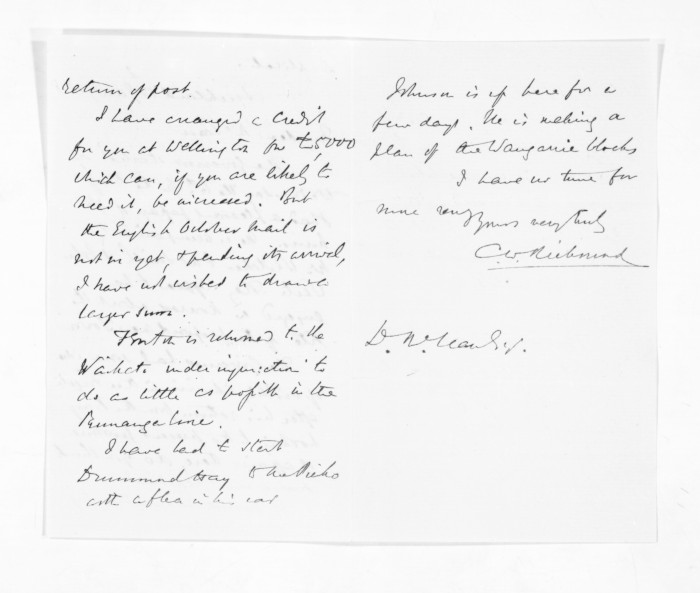 return of post.
I have arranged a Credit
for you at Wellington for £5,000
which can, if you are likely to
need it, be increased. But
the English October Mail is
not in yet, & pending its arrival,
I have not wished to draw a
larger sum.
Fenton is returned to the
Waikato under injunction to
do as little as possible in the
Runanga line.
I have had to start
Drummond Hay to the Piako
with a flea in his ear
Johnson is up here for a
few days. He is making a
plan of the Wangarei blocks
I have no time for
more
Yours very truly
C W Richmond
D. McLean Esq.